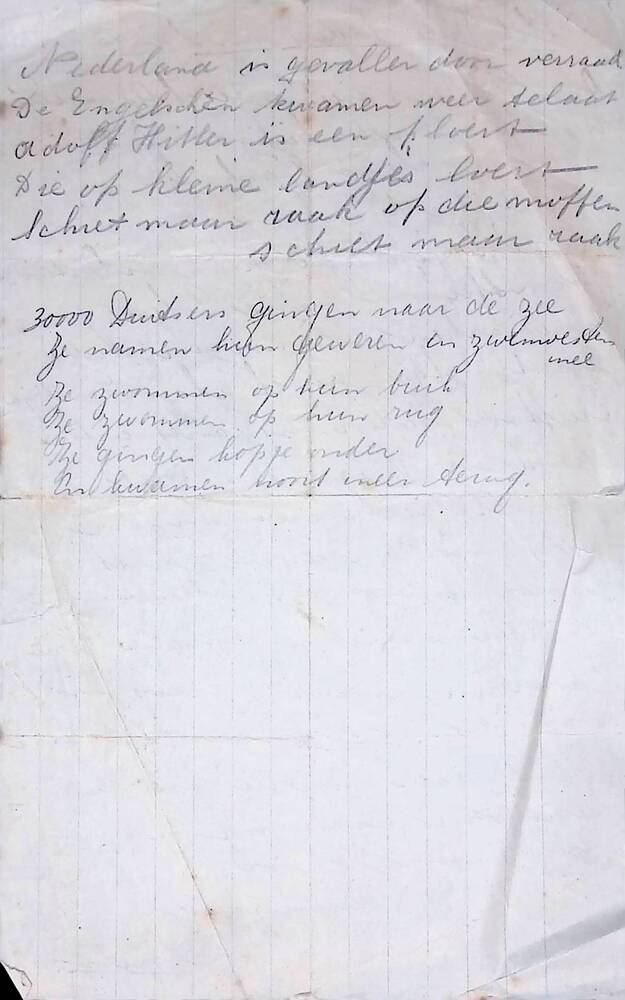 Nederland is gevallen door verraad
De Engelschen kwamen weer telaat
adolf Hitler is een ploert
Die op kleine landjes loert
Schiet maar raak op die moffen
schiet maar raak
30000 Duitsers gingen naar de zee
Ze namen hun geweren en zwemvesten
mee
Ze zwommen op hun buik
Ze zwommen op hun rug
Ze gingen kopje onder
En kwamen nooit meer terug.